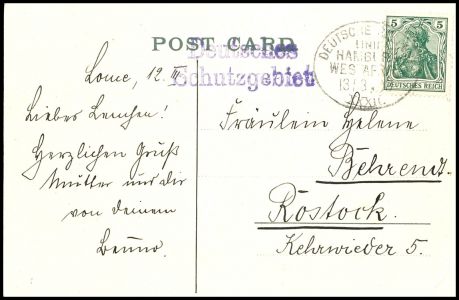 POST CARD
Deutsches
Schutzgebiet
DEUTSCHE
LINIE
HAMBURG
WESTAFRIKA
XXII
5 5
DEUTSCHES REICH
Lome, 12. III
Liebes Lenchen!
Herzlichen Gruß
Mutter und dir
von deinem
Benno.
Fräulein Helene
Behrendt.
Rostock.
Kehrwieder 5.